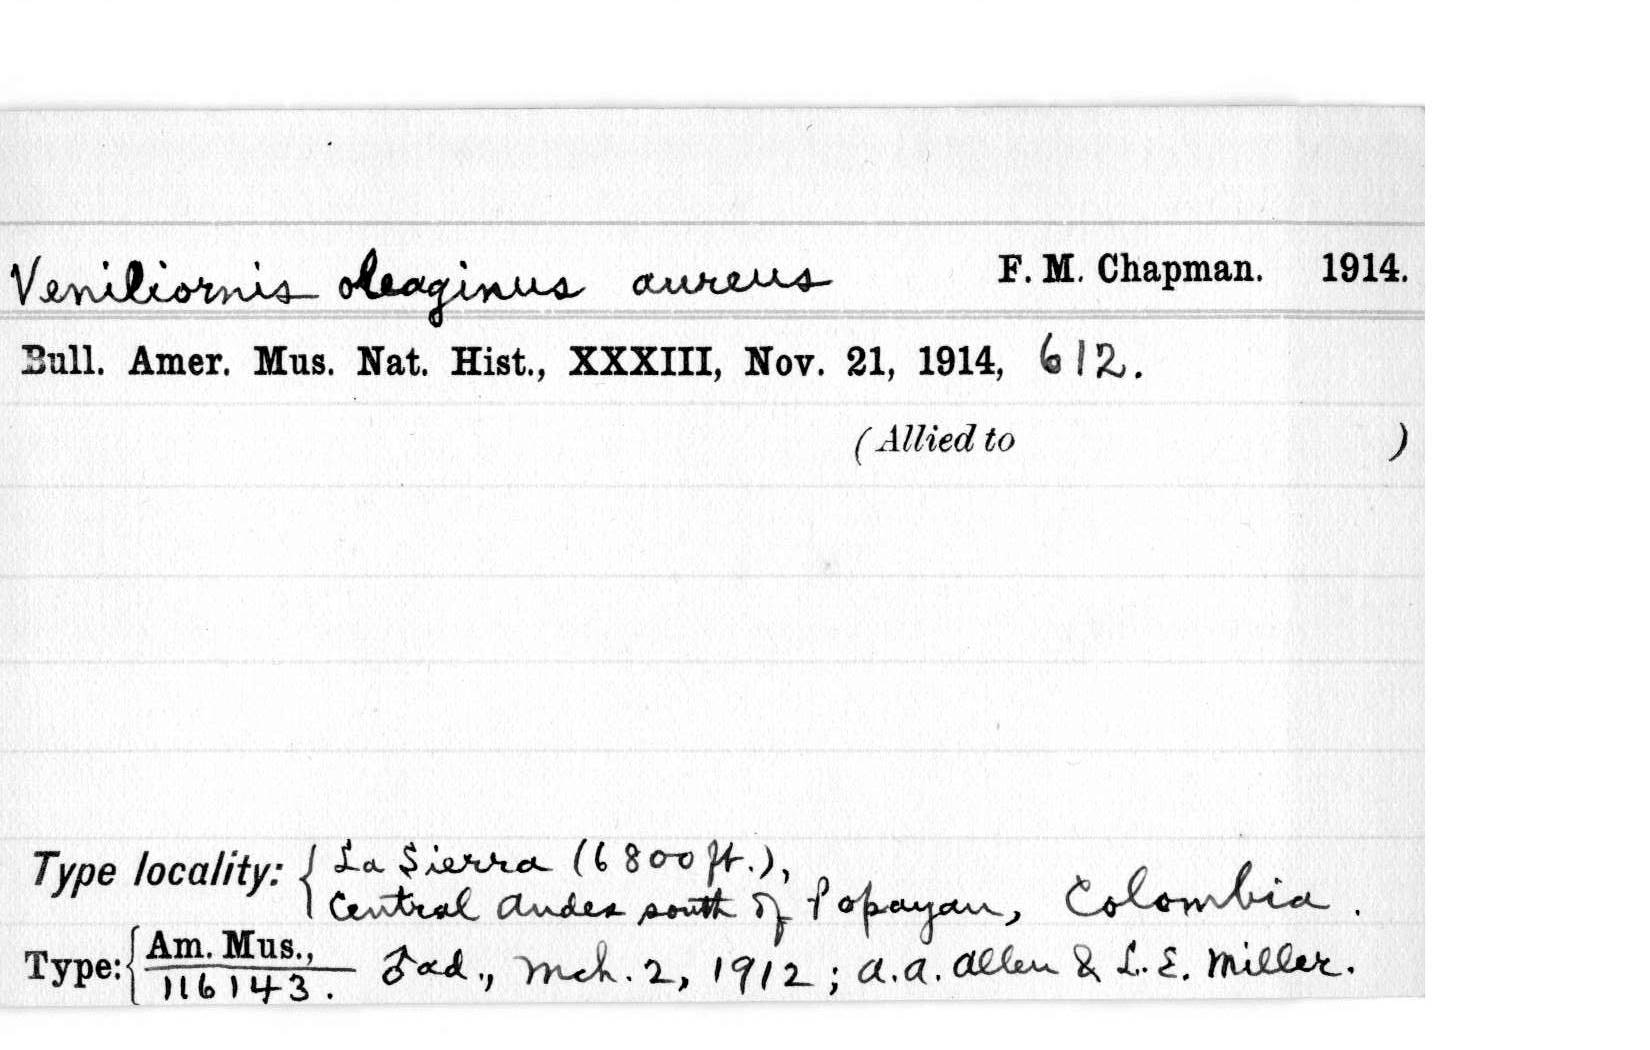 Veniliornis oleaginus aureus F. M. Chapman. 1914.
Bull. Amer. Mus. Nat. Hist., XXXIII, Nov. 21, 1914, 612.
(Allied to )
Type locality: { La Sierra (6800 ft.),
Central Andes south of Popayan, Colombia.
Type: { Am. Mus.,
116143. ♂ad., Mch. 2, 1912; A.A. Allen & L.E. Miller.